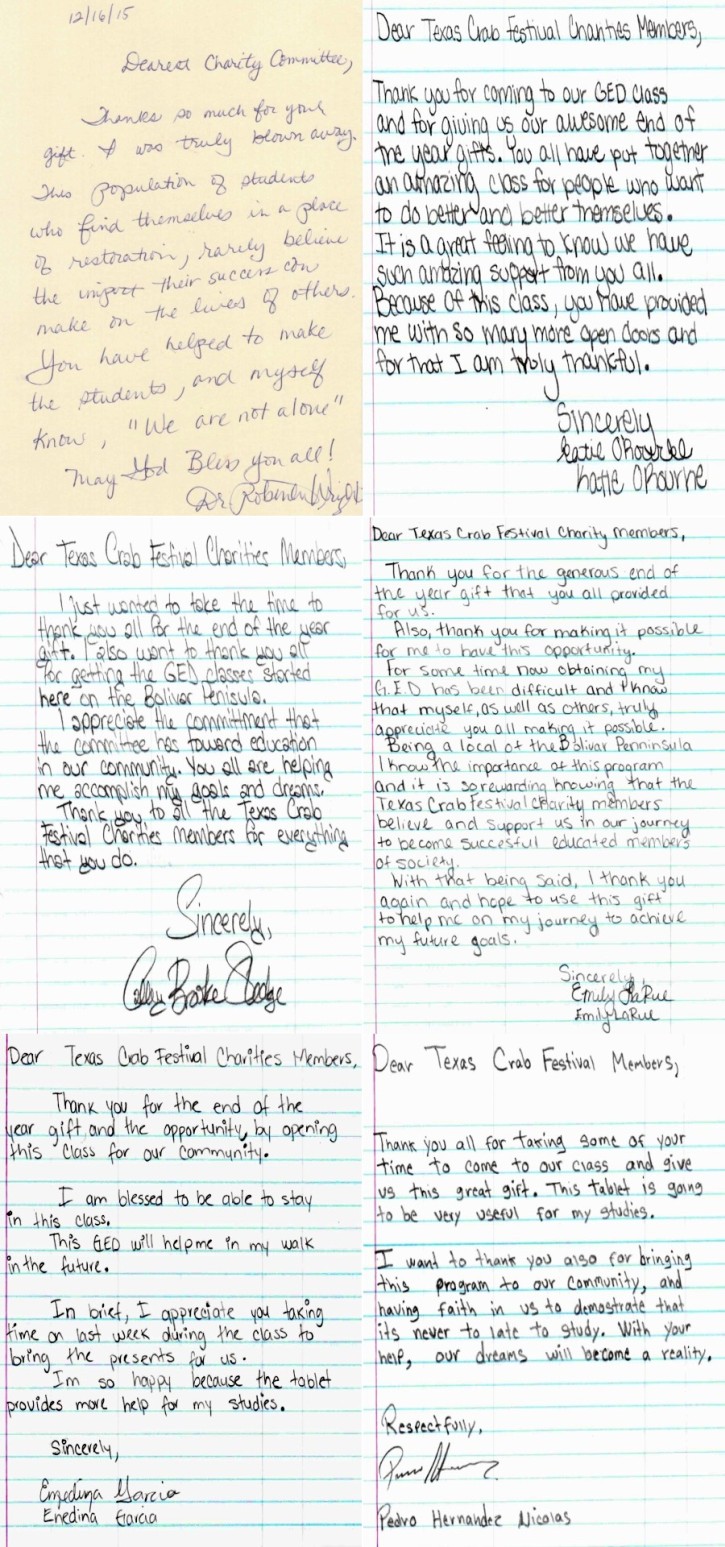 12/16/15
Dearest Charity Committee,
Thanks so much for your
gift. I was truly blown away.
This population of students
who find themselves in a place
of restoration, rarely believe
the impact their success can
make on the lives of others.
You have helped to make
the students, and myself
know, "We are not alone"
May God Bless you all!
Dr. Wright
Dear Texas Crab Festival Charities Members,
Thank you for coming to our GED class
and for giving us our awesome end of
the year gifts. You all have put together
an amazing class for people who want
to do better and better themselves.
It is a great feeling to know we have
such amazing support from you all.
Because of this class, you have provided
me with so many more open doors and
for that I am truly thankful.
Sincerely
Katie ORourke
Katie ORourke
Dear Texas Crab Festival Charities Members,
I just wanted to take the time to
thank you all for the end of the year
gift. I also want to thank you all
for getting the GED classes started
here on the Bolivar Penisula.
I appreciate the committment that
the committee has toward education
in our community. You all are helping
me accomplish my goals and dreams.
Thank you to all the Texas Crab
Festival Charities members for everything
that you do.
Sincerely,
Brooke
Dear Texas Crab Festival Charity members,
Thank you for the generous end of
the year gift that you all provided
for us.
Also, thank you for making it possible
for me to have this opportunity.
For some time now obtaining my
G.E.D has been difficult and I know
that myself, as well as others, truly
appreciate you all making it possible.
Being a local of the Bolivar Penninsula
I know the importance of this program
and it is so rewarding knowing that the
Texas Crab Festival Charity members
believe and support us in our journey
to become succesful educated members
of society.
With that being said, I thank you
again and hope to use this gift
to help me on my journey to achieve
my future goals.
Sincerely,
Emily LaRue
Emily LaRue
Dear Texas Crab Festival Charities Members,
Thank you for the end of the
year gift, and the opportunity, by opening
this class for our community.
I am blessed to be able to stay
in this class.
This GED will help me in my walk
in the future.
In brief, I appreciate you taking
time on last week during the class to
bring the presents for us.
Im so happy because the tablet
provides more help for my studies.
Sincerely,
Enedina Garcia
Enedina Garcia
Dear Texas Crab Festival Members,
Thank you all for taking some of your
time to come to our class and give
us this great gift. This tablet is going
to be very useful for my studies.
I want to thank you also for bringing
this program to our community, and
having faith in us to demostrate that
its never to late to study. With your
help, our dreams will become a reality.
Respectfully,
Pedro Hernandez Nicolas